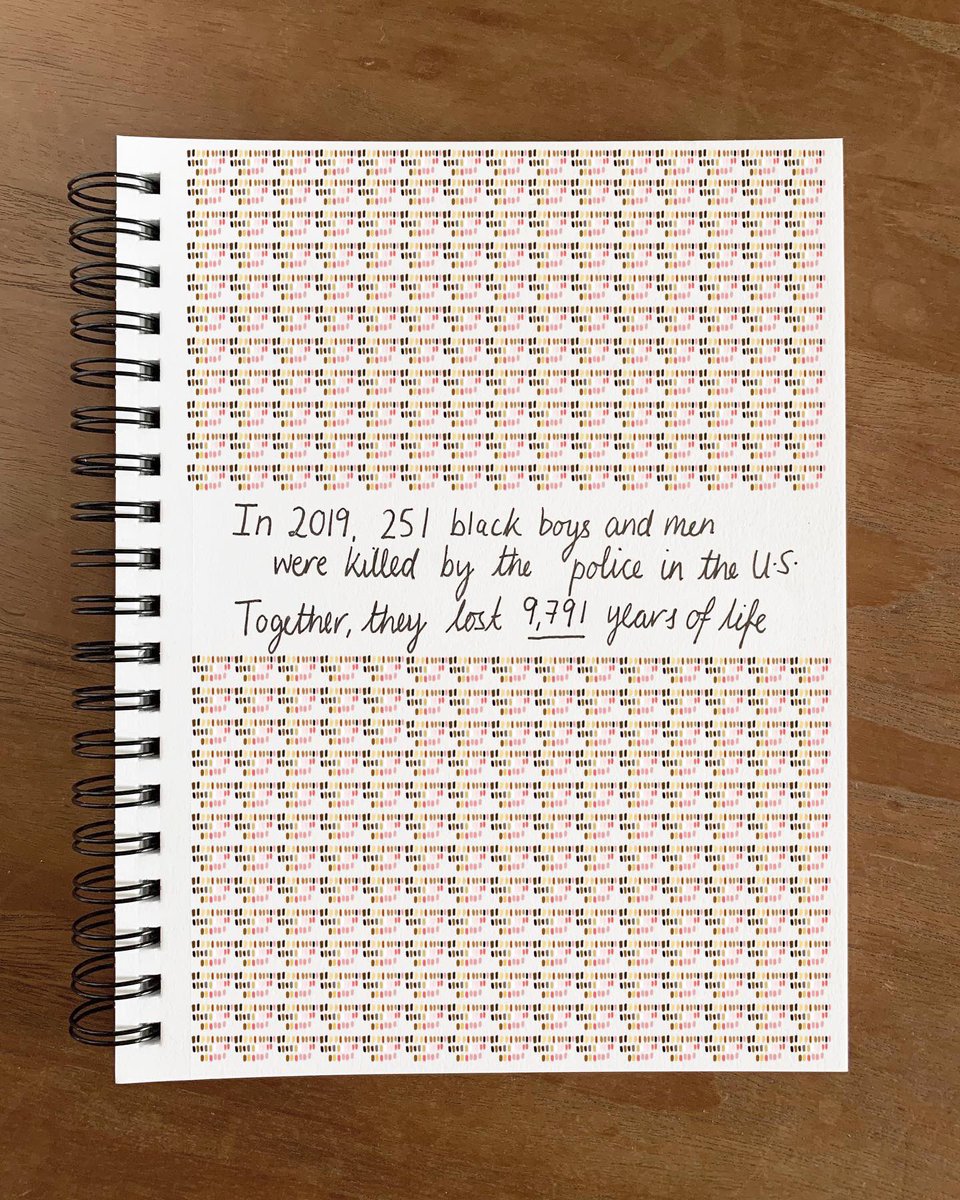 In 2019, 251 black boys and men
were killed by the police in the U.S.
Together, they lost 9,791 years of life